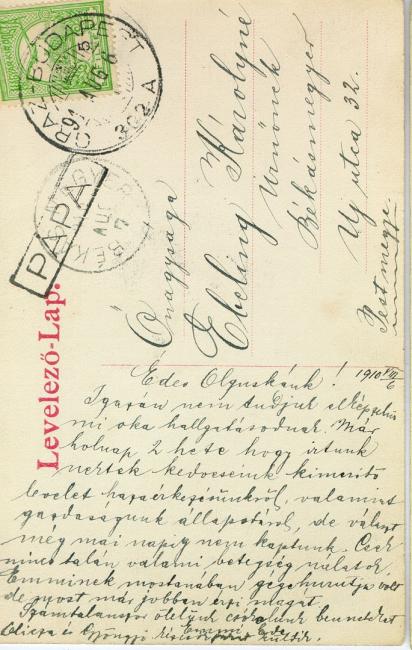 GRAZ-BUDAPEST
302 A
PÁPA
BÉKÁSMEGYER
Levelező-Lap.
Őnagysága
Ebeling Károlyné
Urnőnek
Békásmegyer
Uj utca 32.
Pestmegye.
Édes Olguskánk! 1910 VIII/6
Igazán nem tudjuk elképzelni
mi oka hallgatásodnak. Már
holnap 2 hete hogy irtunk
nektek kedveseink kimeritő
levelet hazaérkezésünkről, valamint
gazdaságunk állapotáról, de választ
még mai napig nem kaptunk. Csak
nincs talán valami betegség nálatok.
Emminek mostanában gégehurutja volt
de most már jobban érzi magát.
Számtalanszor ölelünk csókolunk benneteket
Emmi Ede